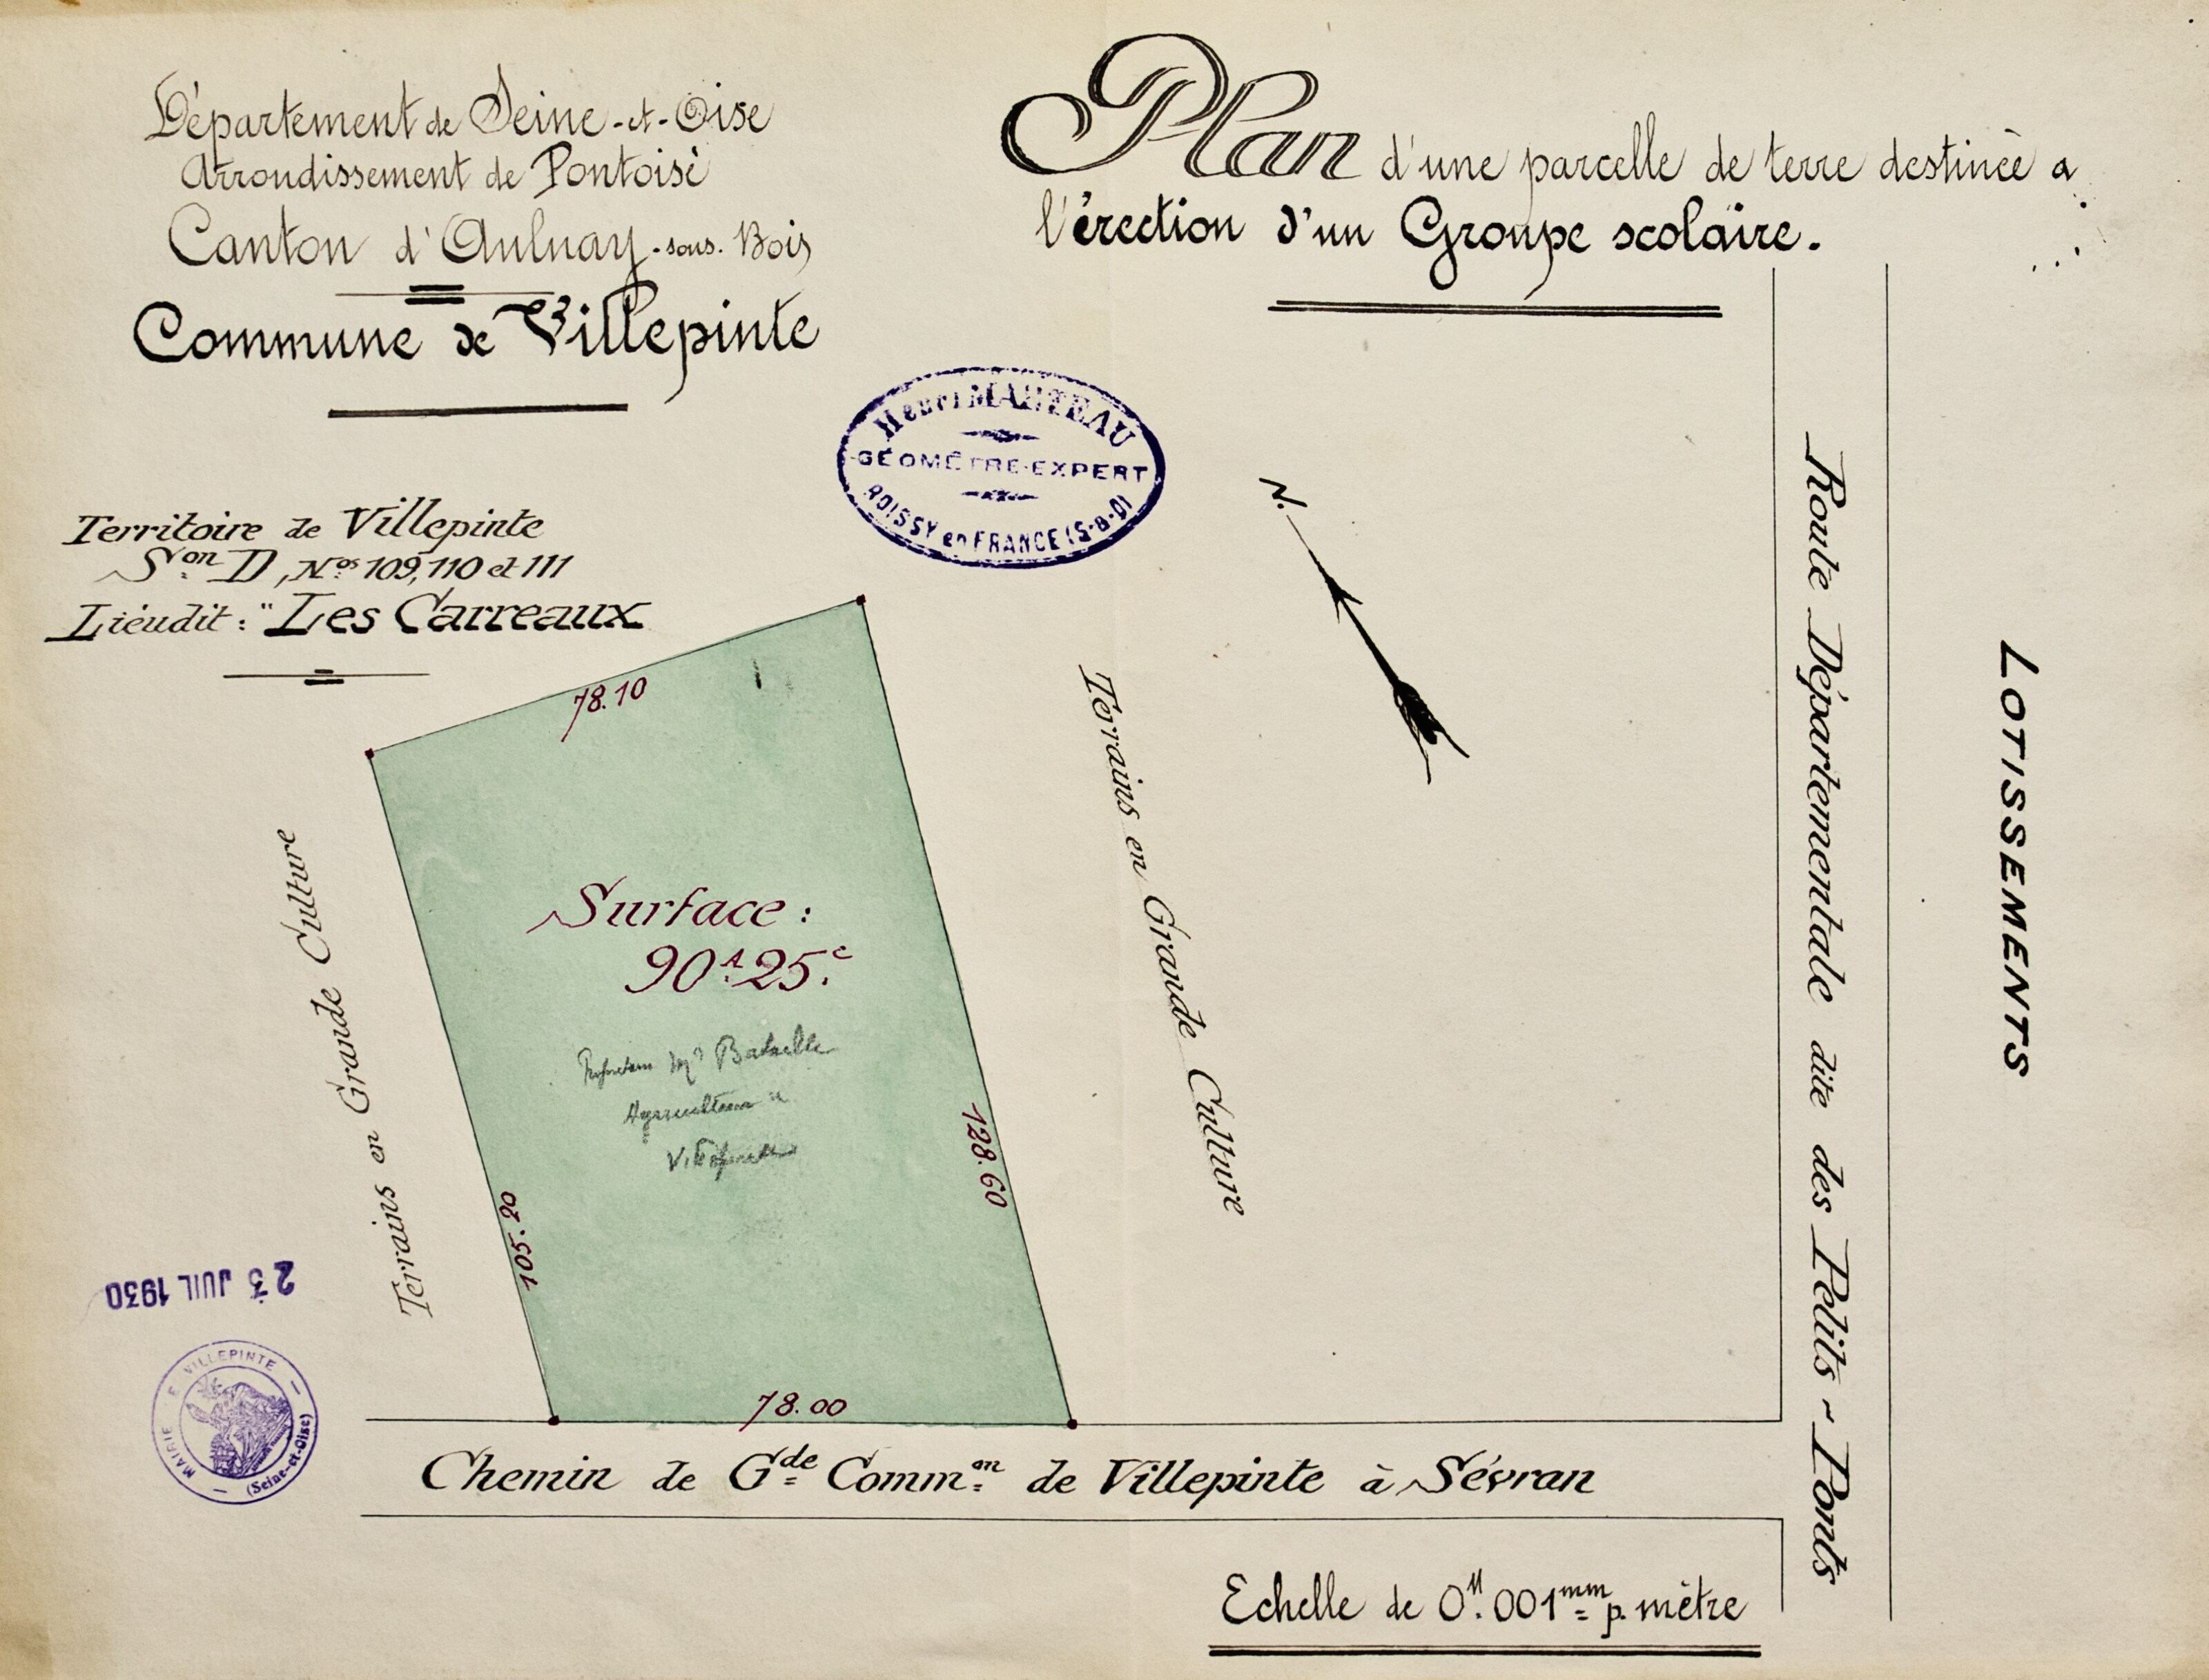 Département de Seine-et-Oise
Arrondissement de Pontoise
Canton d'Aulnay-sous-Bois
Commune de Villepinte
Plan d'une parcelle de terre destinée a
l'érection d'un Groupe scolaire.
Henri MAUTEAU
GÉOMÈTRE-EXPERT
ROISSY en FRANCE (S-&-O)
Territoire de Villepinte
Son D, Nos 109, 110 et 111
Lieudit: "Les Carreaux
N.
78.10
Surface:
90A.25c.
Mr Bataille
Agriculteur a
Villepinte
105.20
128.60
78.00
Terrains en Grande Culture
Terrains en Grande Culture
Route Départementale dite des Petits-Ponts
LOTISSEMENTS
23 JUIL 1930
MAIRIE E VILLEPINTE
(Seine-et-Oise)
Chemin de Gde Common de Villepinte à Sévran
Echelle de 0M.001mm p. mètre